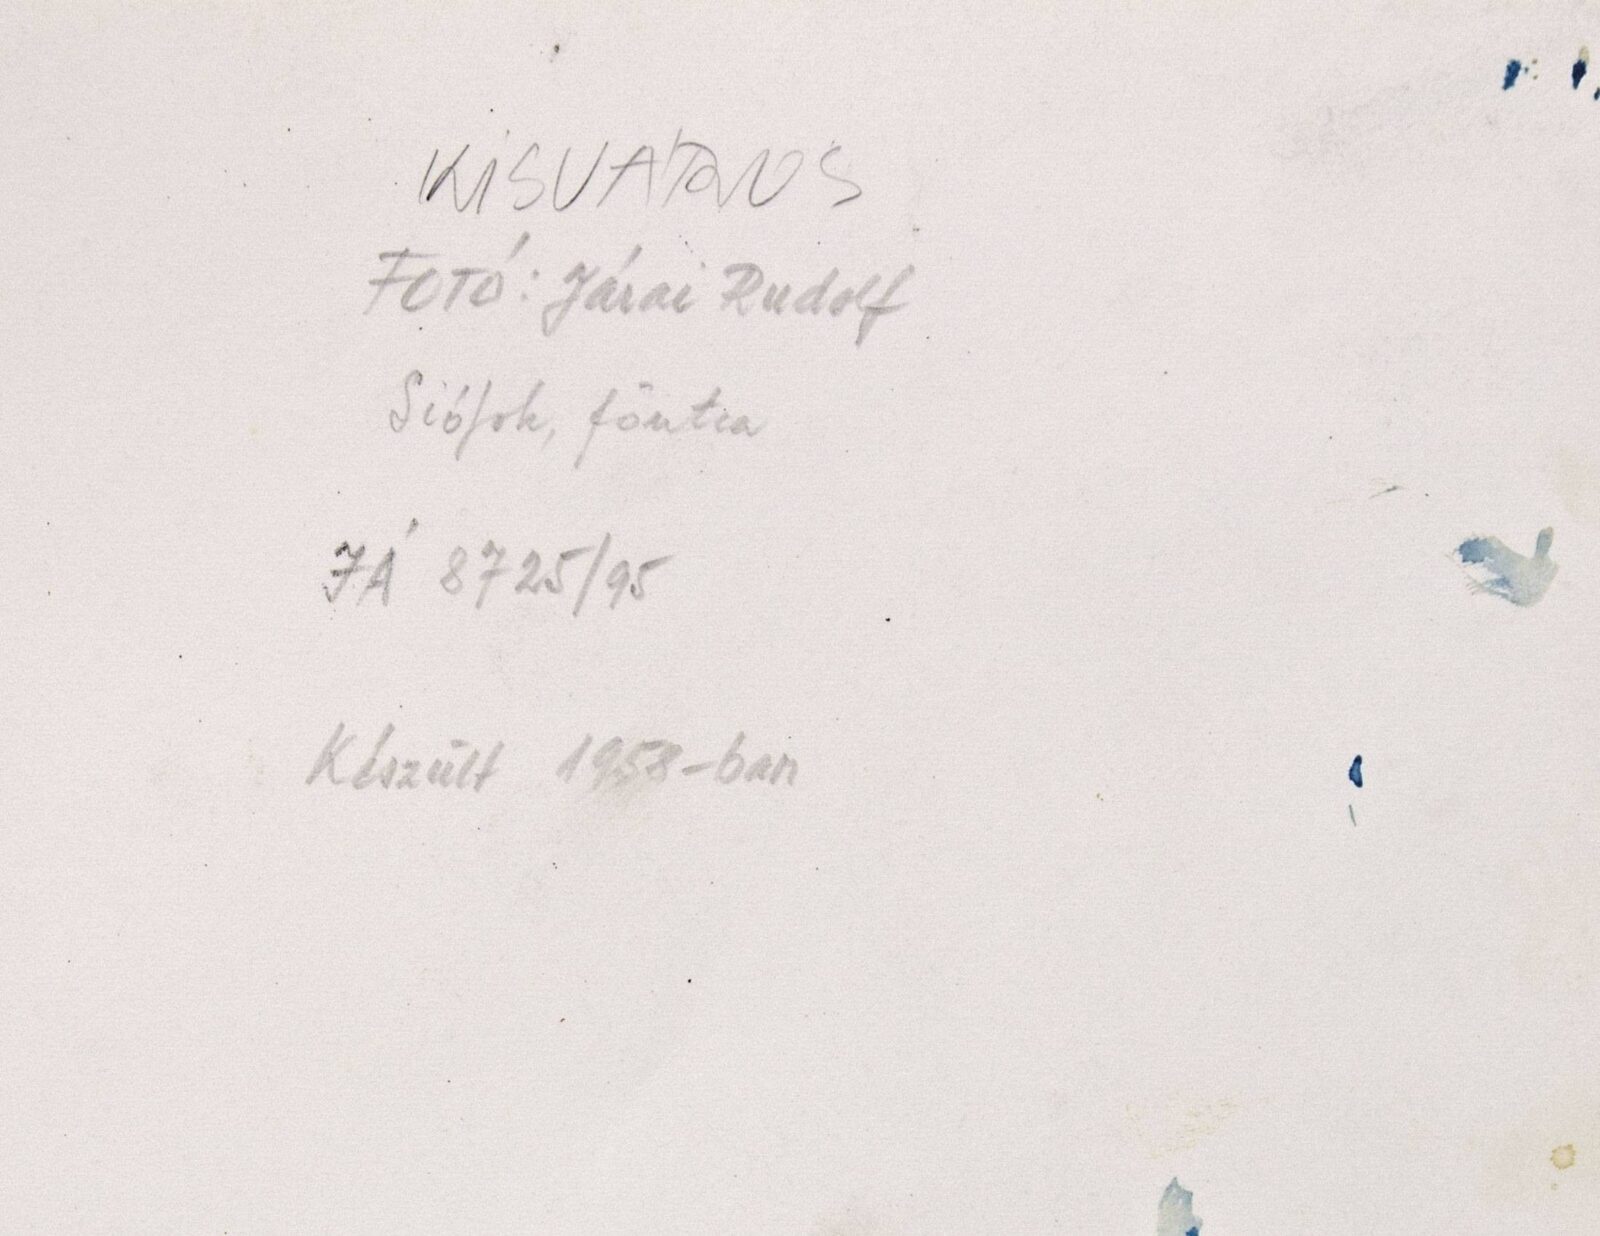 KISVÁROS
FOTÓ: Járai Rudolf
Siófok, főutca
JÁ 8725/95
Készült 1958-ban